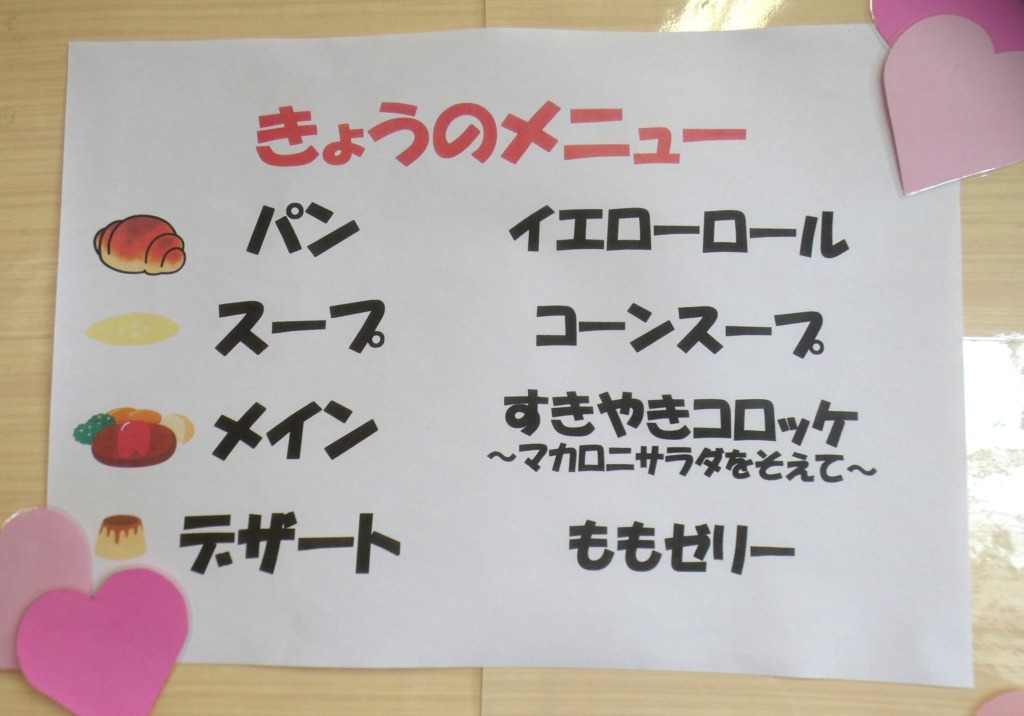 きょうのメニュー
パン イエローロール
スープ コーンスープ
メイン すきやきコロッケ
～マカロニサラダをそえて～
デザート ももゼリー